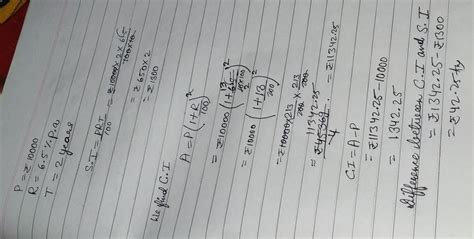 P = ₹10000
R = 6.5 % P.a.
T = 2 years
S.I = PRT/100
= ₹10000×2×
= ₹650×2
= ₹1300
We find C.I
A = P(1+R/100)²
= ₹10000(1+13/2×100)²
= ₹10000(1+13/200)²
= ₹10000×213/200×213/200
= 45369/4 = ₹11342.25
11342.25
C.I = A-P
= ₹11342.25-10000
= 1342.25
Difference between C.I and S.I
= ₹1342.25-₹1300
= ₹42.25